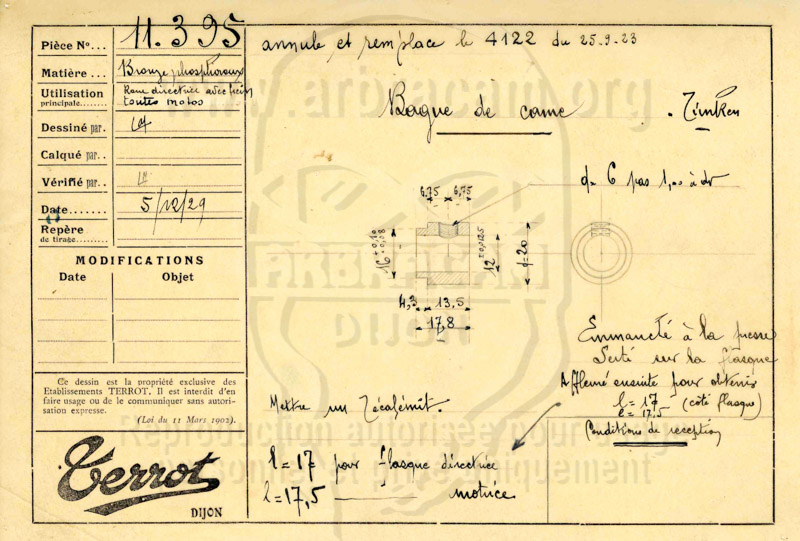 Pièce N°... 11.395
Matière... Bronze phosphoreux
Utilisation principale... Roue directrice avec frein
toutes motos
Dessiné par.
Calqué par..
Vérifié par..
Date...... 5/12/29
Repère de tirage.
MODIFICATIONS
Date Objet
Ce dessin est la propriété exclusive des
Etablissements TERROT. Il est interdit d'en
faire usage ou de le communiquer sans autori-
sation expresse.
(Loi du 11 Mars 1902).
Terrot
DIJON
annule et remplace le 4122 du 25.9.23
Bague de came
. Timken
de 6 pas 1,00 à dr
6,75 6,75
16 +0,10 +0,08
12 ±0,0125
d=20
4,3 13,5
17,8
Emmancté à la presse
Serté sur la flasque
Affleuré ensuite pour obtenir
l=17 (côté flasque)
l=17,5
Conditions de réception
Mettre un
l=17 pour flasque directrice
l=17,5 —— motrice
www.arbracam.org
ARBRACAM
DIJON
Reproduction autorisée pour usage
personnel et privé uniquement